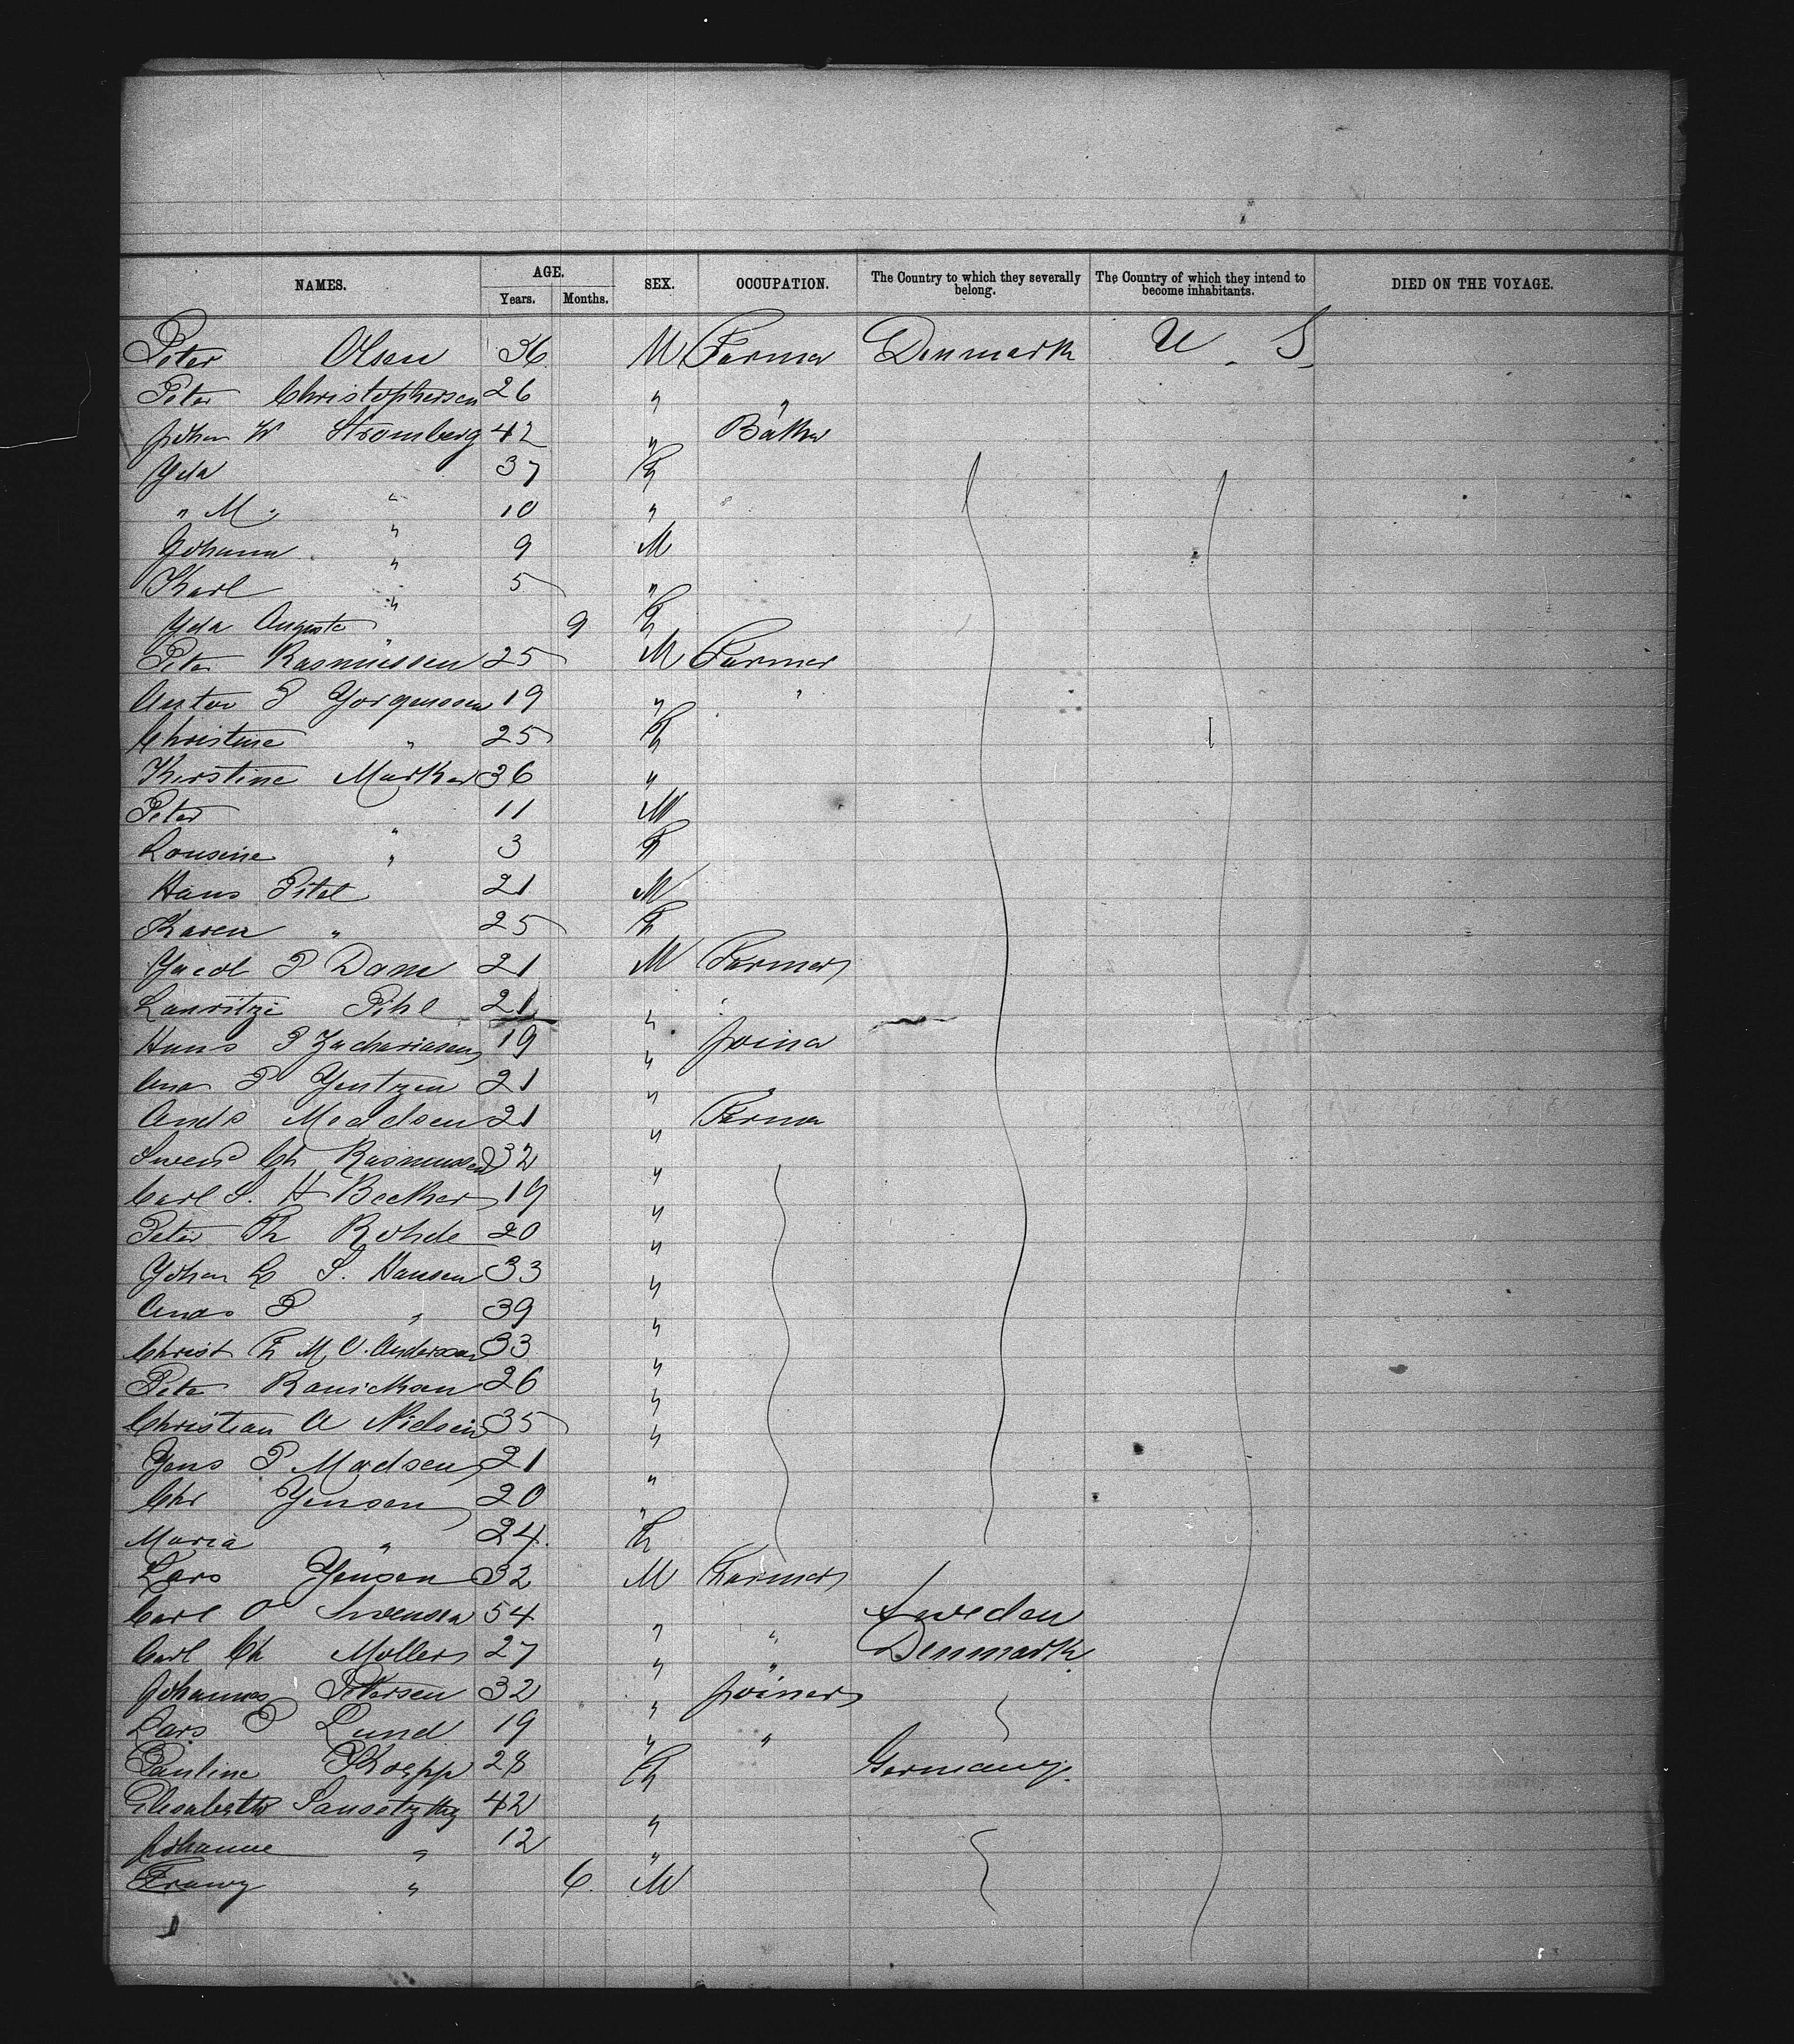 NAMES. AGE. SEX. OCCUPATION. The Country to which they severally belong. The Country of which they intend to become inhabitants. DIED ON THE VOYAGE.
Years. Months.
Peter Olsen 36 M Farmer Denmark U. S.
Peter Christophersen 26 " "
Johan W Stromberg 42 " Baker
Yda " 37 F
" M. " 10 "
Johann " 9 M
Karl " 5 "
Yda Auguste " 9 F
Peter Rasmussen 25 M Farmer
Anton P Yorgenssen 19 " "
Christine " 25 F
Kirstine Marker 36 "
Peter " 11 M
Lousine " 3 F
Hans Pitel 21 M
Karen " 25 F
Yacob P Dam 21 M Farmer
Lauritze Pihl 21 " "
Hans P Zachariasen 19 " Joiner
P Yentzen 21 " "
Ands Madsen 21 " Farmer
Swend Ch Rasmussen 32 "
Carl S. H Becker 19 "
Peter Th Rohde 20 "
Johan L S. Hansen 33 "
Ands P " 39 "
Christ F M O. Anderssen 33 "
Peter 26 "
Christian A Nielsen 35 "
Yens P Madsen 21 "
Chr Yensen 20 "
Maria " 24 F
Lars Yensen 32 M Farmer
Carl O Swensen 54 " " Sweden
Carl Ch Moller 27 " " Denmark
Johannes Petersen 32 " Joiner
Lars P Lund 19 " "
Pauline Koepp 28 F Germany.
Elisabeth 42 "
Johanne " 12 "
Franz " 6 M